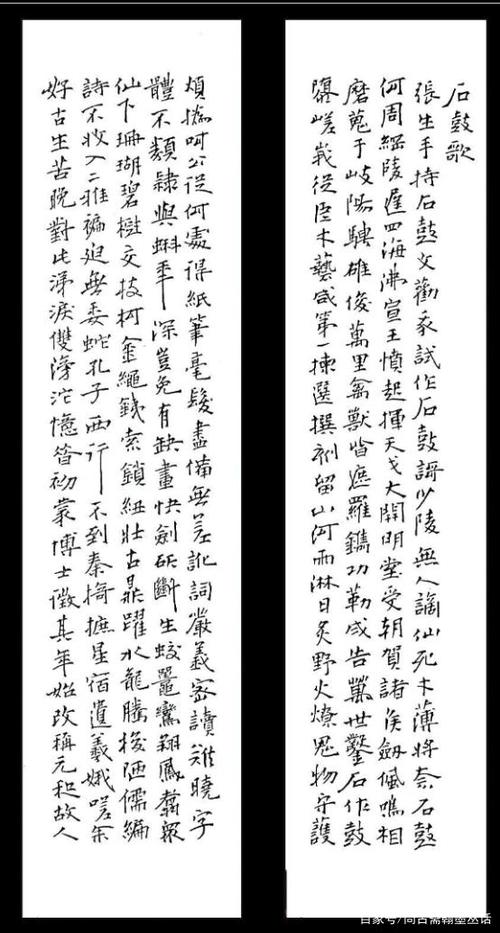 石鼓歌
張生手持石鼓文勸我試作石鼓謌少陵無人謫仙死才薄將奈石鼓
何周綱陵遲四海沸宣王憤起揮天戈大開明堂受朝賀諸侯劍佩鳴相
磨蒐于岐陽騁雄俊萬里禽獸皆遮羅鐫功勒成告萬世鑿石作鼓
隳嵯峨從臣才藝咸第一揀選撰刻留山阿雨淋日炙野火燎鬼物守護
煩撝呵公從何處得紙筆毫髮盡備無差訛詞嚴義密讀難曉字
體不類隸與蝌年深豈免有缺畫快劍斫斷生蛟鼉鸞翔鳳翥衆
仙下珊瑚碧樹交枝柯金繩鐵索鎖紐壯古鼎躍水龍騰梭陋儒編
詩不收入二雅褊迫無委蛇孔子西行不到秦掎摭星宿遺羲娥嗟余
好古生苦晚對此涕淚雙滂沱憶昔初蒙博士徵其年始改稱元和故人
百家号/尚古斋翰墨丛话